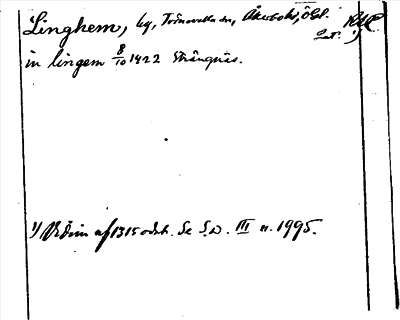 Linghem, by, Törnevalla sn, Åkerbo hd, Ögl. RAP.
Lat. 1)
in lingem 8/10 1422 Strängnäs.
1) Vidim af 1315 odat. Se S.D. III n. 1995.